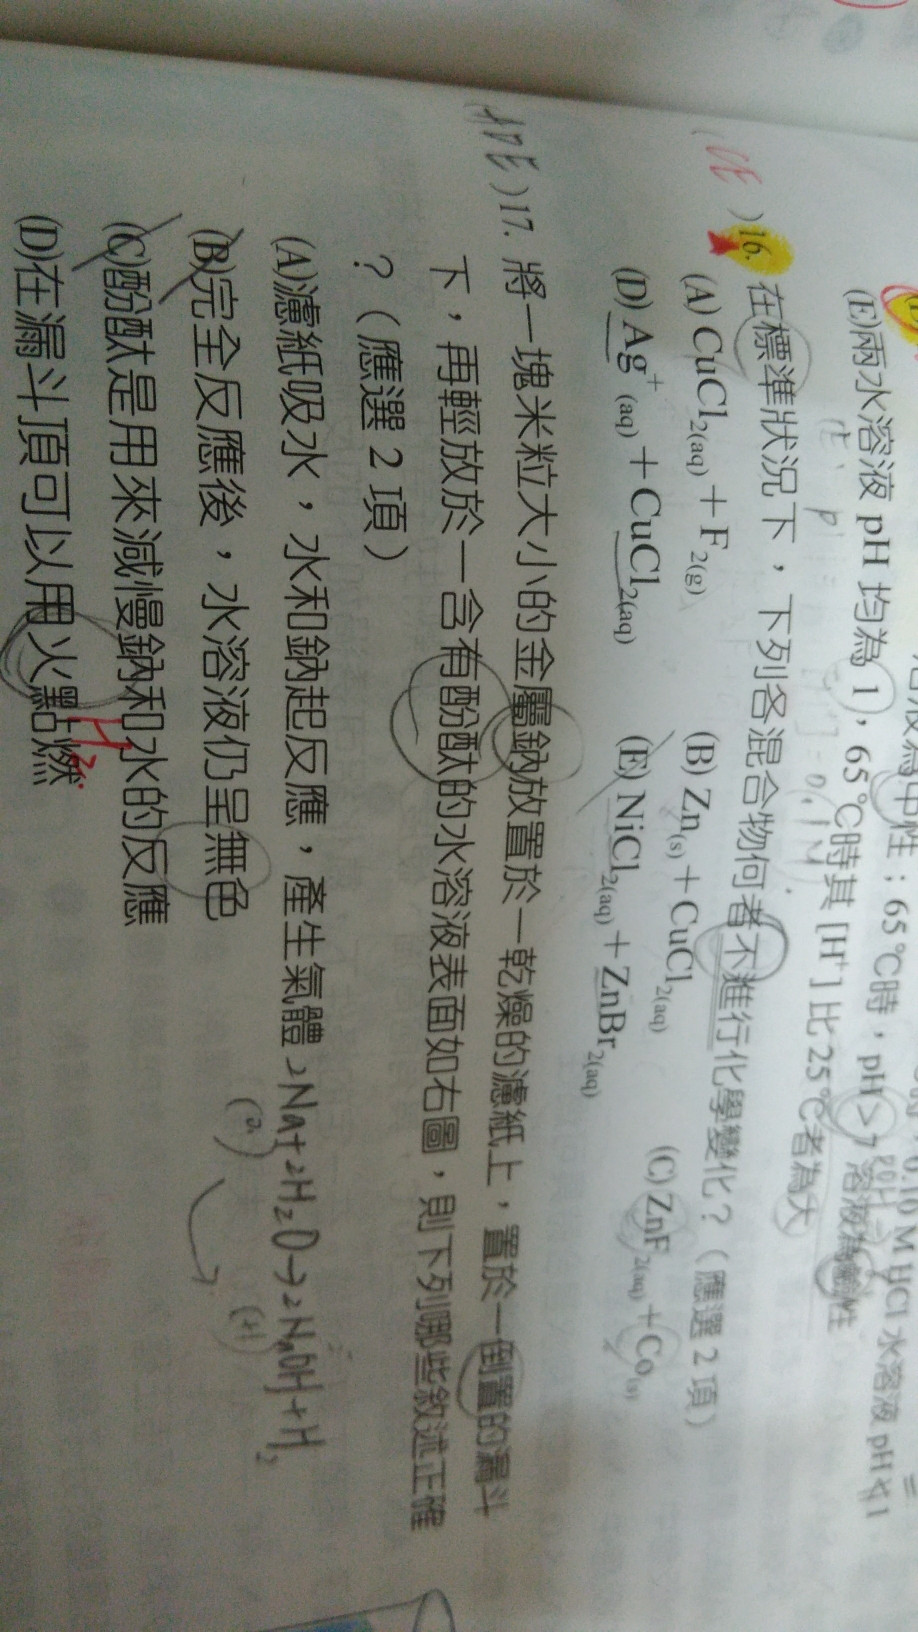 0.10 M HCl 水溶液 pH < 1
(E)兩水溶液 pH 均為 1，65℃時其 [H⁺] 比 25℃者為大
(CE)16. 在標準狀況下，下列各混合物何者不進行化學變化？（應選 2 項）
(A) CuCl₂(aq) + F₂(g) (B) Zn(s) + CuCl₂(aq) (C) ZnF₂(aq) + Co(s)
(D) Ag⁺(aq) + CuCl₂(aq) (E) NiCl₂(aq) + ZnBr₂(aq)
(ADE)17. 將一塊米粒大小的金屬鈉放置於一乾燥的濾紙上，置於一倒置的漏斗
下，再輕放於一含有酚酞的水溶液表面如右圖，則下列哪些敘述正確
？（應選 2 項）
(A)濾紙吸水，水和鈉起反應，產生氣體 2Na+2H₂O→2NaOH+H₂
(B)完全反應後，水溶液仍呈無色
(C)酚酞是用來減慢鈉和水的反應
(D)在漏斗頂可以用火點燃
H₂